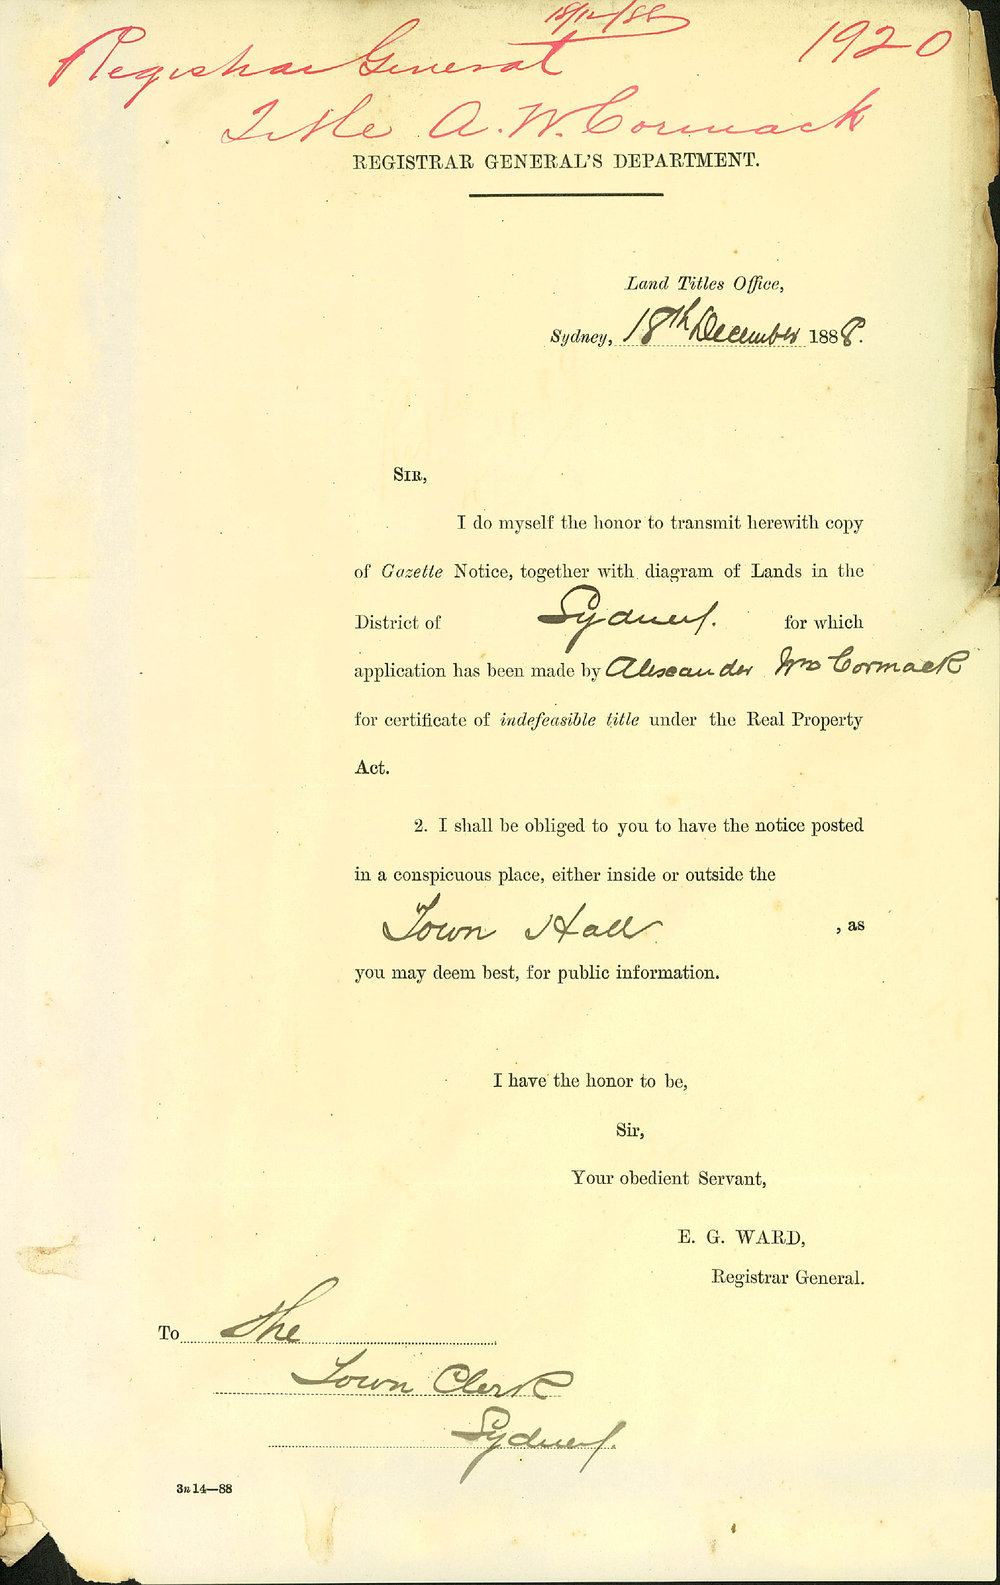 18/12/88
Registrar General 1920
Title A. W. Cormack
REGISTRAR GENERAL'S DEPARTMENT.
Land Titles Office,
Sydney, 18th December 1888.
SIR,
I do myself the honor to transmit herewith copy
of Gazette Notice, together with diagram of Lands in the
District of Sydney. for which
application has been made by Alexander Wm Cormack
for certificate of indefeasible title under the Real Property
Act.
2. I shall be obliged to you to have the notice posted
in a conspicuous place, either inside or outside the
Town Hall , as
you may deem best, for public information.
I have the honor to be,
Sir,
Your obedient Servant,
E. G. WARD,
Registrar General.
To The
Town Clerk
Sydney.
3n14—88